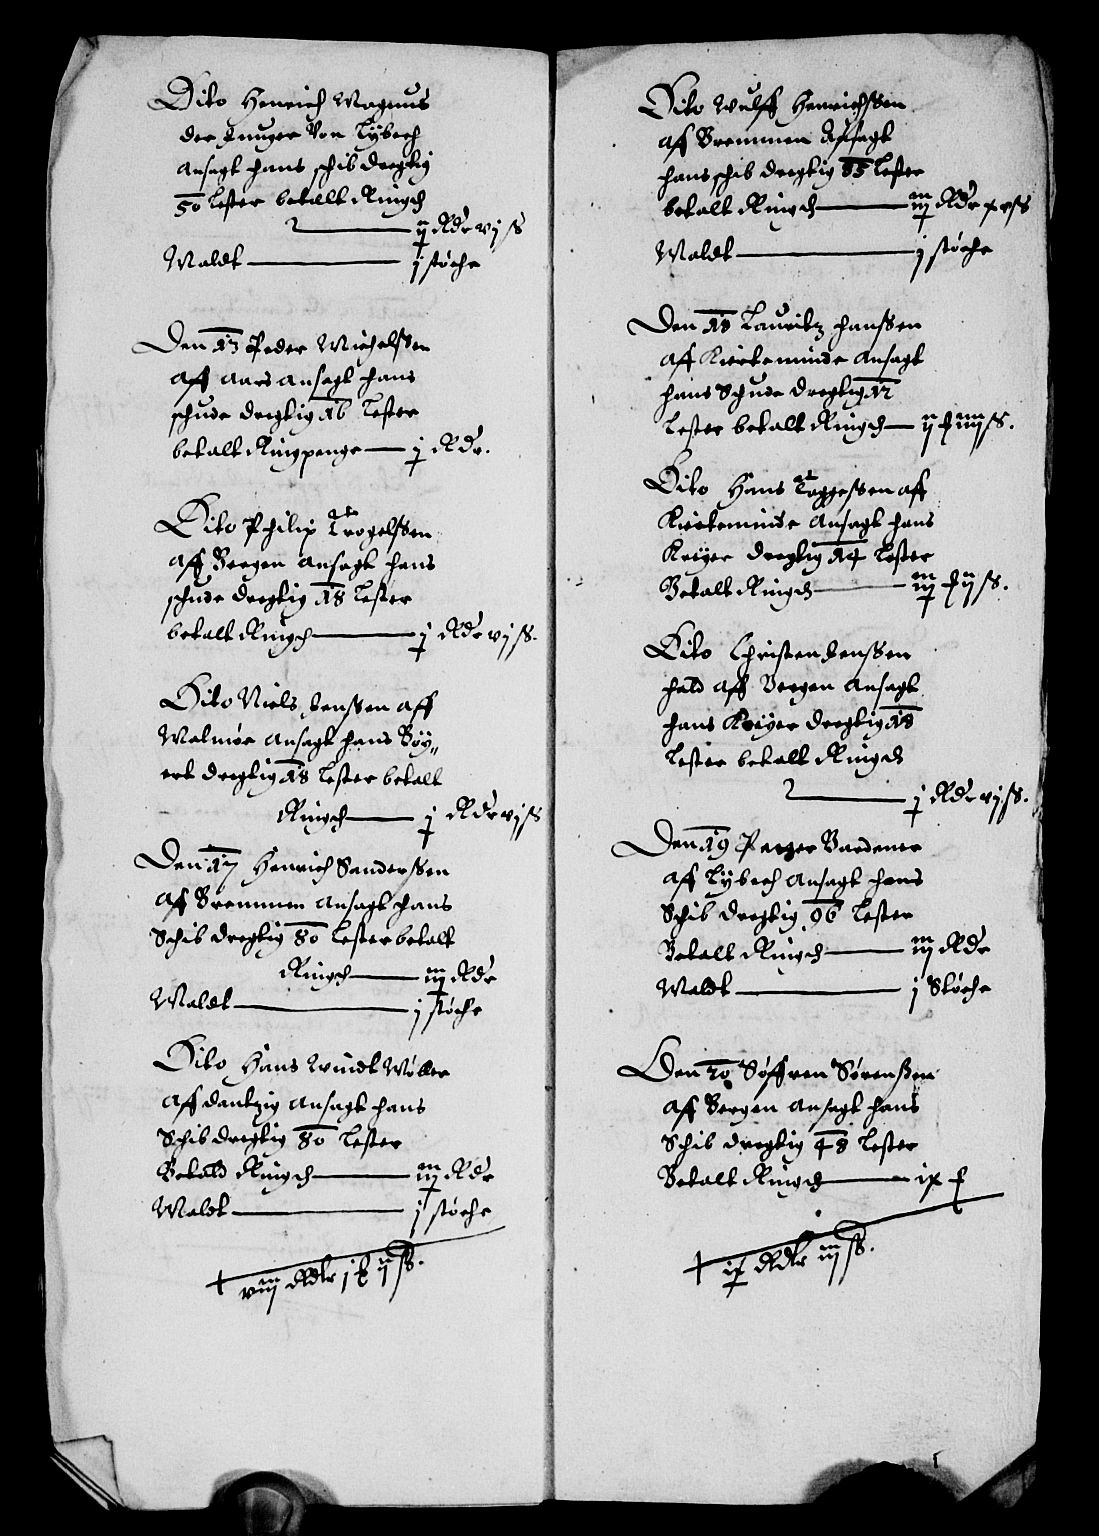 Dito Henrich Magnus
der Junger Von Lÿbech
Ansagt hans schib dregtig
50 Lester betallt Ringch
ij Rdr vj ß
Maldt j støche
Den 13 Peder Michelssen
aff Aars ansagt hans
schude dregtig 16 Lester
betalt Ringpenge j Rdr.
Dito Philip Trogelssen
aff Bergen ansagt hans
schude dregtig 18 Lester
betalt Ringch j Rdr vj ß.
Dito Niels Jenssen aff
Malmøe ansagt hans Böÿ„
ert dregtig 18 Lester betalt
Ringch j Rdr vj ß
Den 17 Henrich Sanderssen
aff Bremmen ansagt hans
Schib dregtig 80 Lester betalt
Ringch iij Rdr
Maldt j støche
Dito Hans Windt Möller
Aff dantzig ansagt hans
Schib dregtig 80 Lester
Betald Ringch iij Rdr
Maldt j støche
viij Rdlr j ij ß.
Dito Wulff Henrichssen
aff Bremmen Ansagt
hans schib dregtig 85 Lester
betalt Ringch iij Rdr xvß
Maldt j støche
Den 18 Lauritz Hanssen
aff Kierteminde Ansagt
hans Schude dregtig 12
Lester betalt Ringch ij iiij ß.
Dito Hans Laggessen aff
Kierteminde Ansagt hans
Kreÿer dregtig 14 Lester
Betalt Ringch iij ij ß.
Dito Christen Jenssen
hald aff Bergen Ansagt
hans Kreÿer dregtig 18
Lester betalt Ringch
j Rdr vj ß.
Den 19 Bardener
aff Lÿbech Ansagt hans
Schib dregtig 96 Lester
Betalt Ringch iij Rdr
Maldt j Støche
Den 20 Søffren Sørenssen
aff Bergen Ansagt hans
Schib dregtig 48 Lester
Betalt Ringch ix
ix Rdlr iij ß.